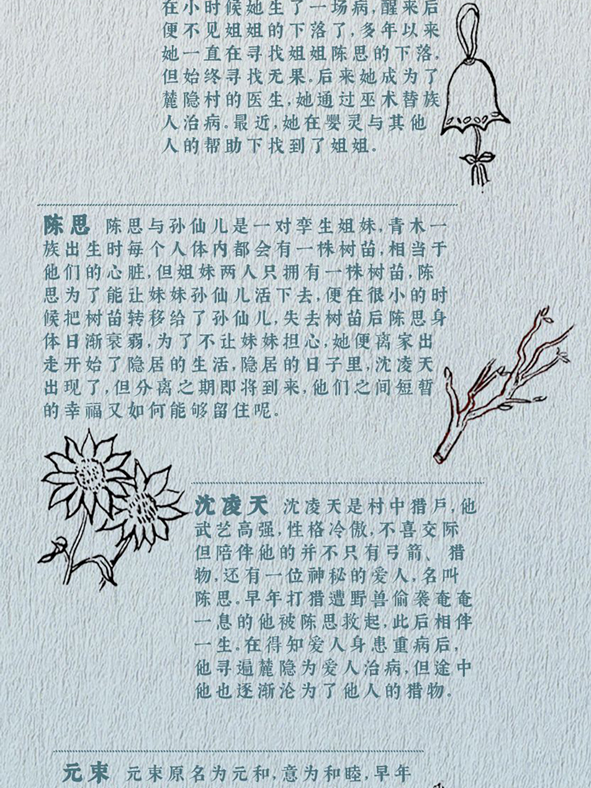 在小时候她生了一场病,醒来后
便不见姐姐的下落了,多年以来
她一直在寻找姐姐陈思的下落.
但始终寻找无果.后来她成为了
麓隐村的医生,她通过巫术替族
人治病.最近,她在婴灵与其他
人的帮助下找到了姐姐.
陈思 陈思与孙仙儿是一对孪生姐妹,青木一
族出生时每个人体内都会有一株树苗,相当于
他们的心脏,但姐妹两人只拥有一株树苗,陈
思为了能让妹妹孙仙儿活下去,便在很小的时
候把树苗转移给了孙仙儿,失去树苗后陈思身
体日渐衰弱,为了不让妹妹担心,她便离家出
走开始了隐居的生活,隐居的日子里,沈凌天
出现了,但分离之期即将到来,他们之间短暂
的幸福又如何能够留住呢.
沈凌天 沈凌天是村中猎户,他
武艺高强,性格冷傲,不喜交际
但陪伴他的并不只有弓箭、猎
物,还有一位神秘的爱人,名叫
陈思.早年打猎遭野兽偷袭奄奄
一息的他被陈思救起,此后相伴
一生.在得知爱人身患重病后,
他寻遍麓隐为爱人治病,但途中
他也逐渐沦为了他人的猎物.
元束 元束原名为元和,意为和睦,早年